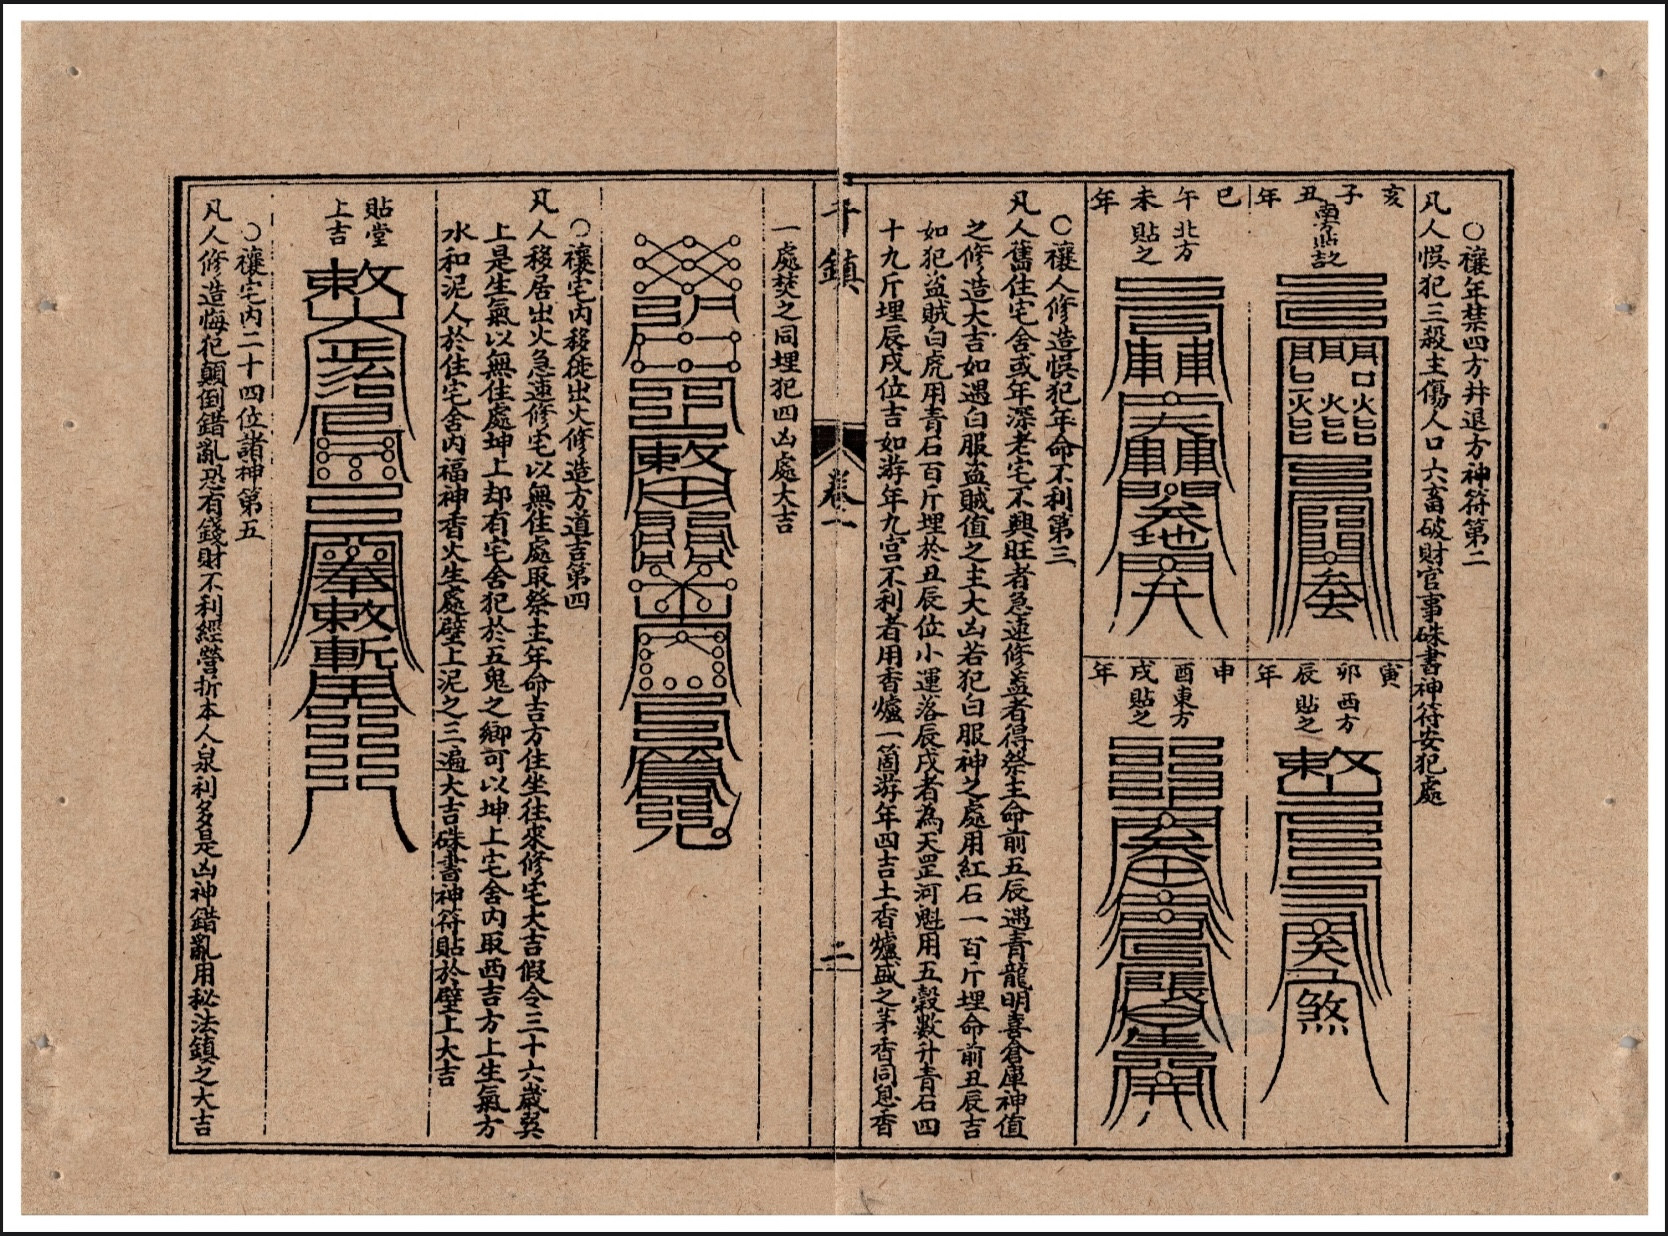 ○禳年禁四方井退方神符第二
凡人悮犯三殺主傷人口六畜破財官事硃書神符安犯處
亥子丑年
南方貼之
巳午未年
北方貼之
寅卯辰年
西方貼之
申酉戌年
東方貼之
○禳人修造悮犯年命不利第三
凡人舊住宅舍或年深老宅不興旺者急速修蓋者得祭主命前五辰遇青龍明喜倉庫神值
之修造大吉如遇白服盗賊值之主大凶若犯白服神之處用紅石一百斤埋命前丑辰吉
如犯盗賊白虎用青石百斤埋於丑辰位小運落辰戌者為天罡河魁用五穀數升青石四
十九斤埋辰戌位吉如游年九宮不利者用香爐一箇游年四吉土香爐盛之茅香同息香
鎮
卷一
二
一處焚之同埋犯四凶處大吉
○禳宅內移徙出火修造方道吉第四
凡人移居出火急速修宅以無住處取祭主年命吉方住坐往來修宅大吉假令三十六歲巽
上是生氣以無住處坤上却有宅舍犯於五鬼之鄉可以坤上宅舍內取西吉方上生氣方
水和泥人於住宅舍內福神香火生處壁上泥之三遍大吉硃書神符貼於壁上大吉
貼堂
上吉
○禳宅內二十四位諸神第五
凡人修造悔犯顛倒錯亂恐有錢財不利經營折本人泉利多是凶神錯亂用秘法鎮之大吉